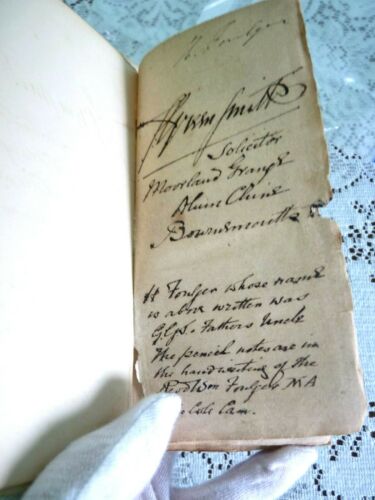 H. Foulger
Irwin Smith
Solicitor
Moorland Grange
Alum Chine
Bournemouth
H Foulger whose name
is above written was
Father's Uncle
The pencil notes are in
the handwriting of the
Revd Wm Foulger MA
Cam.